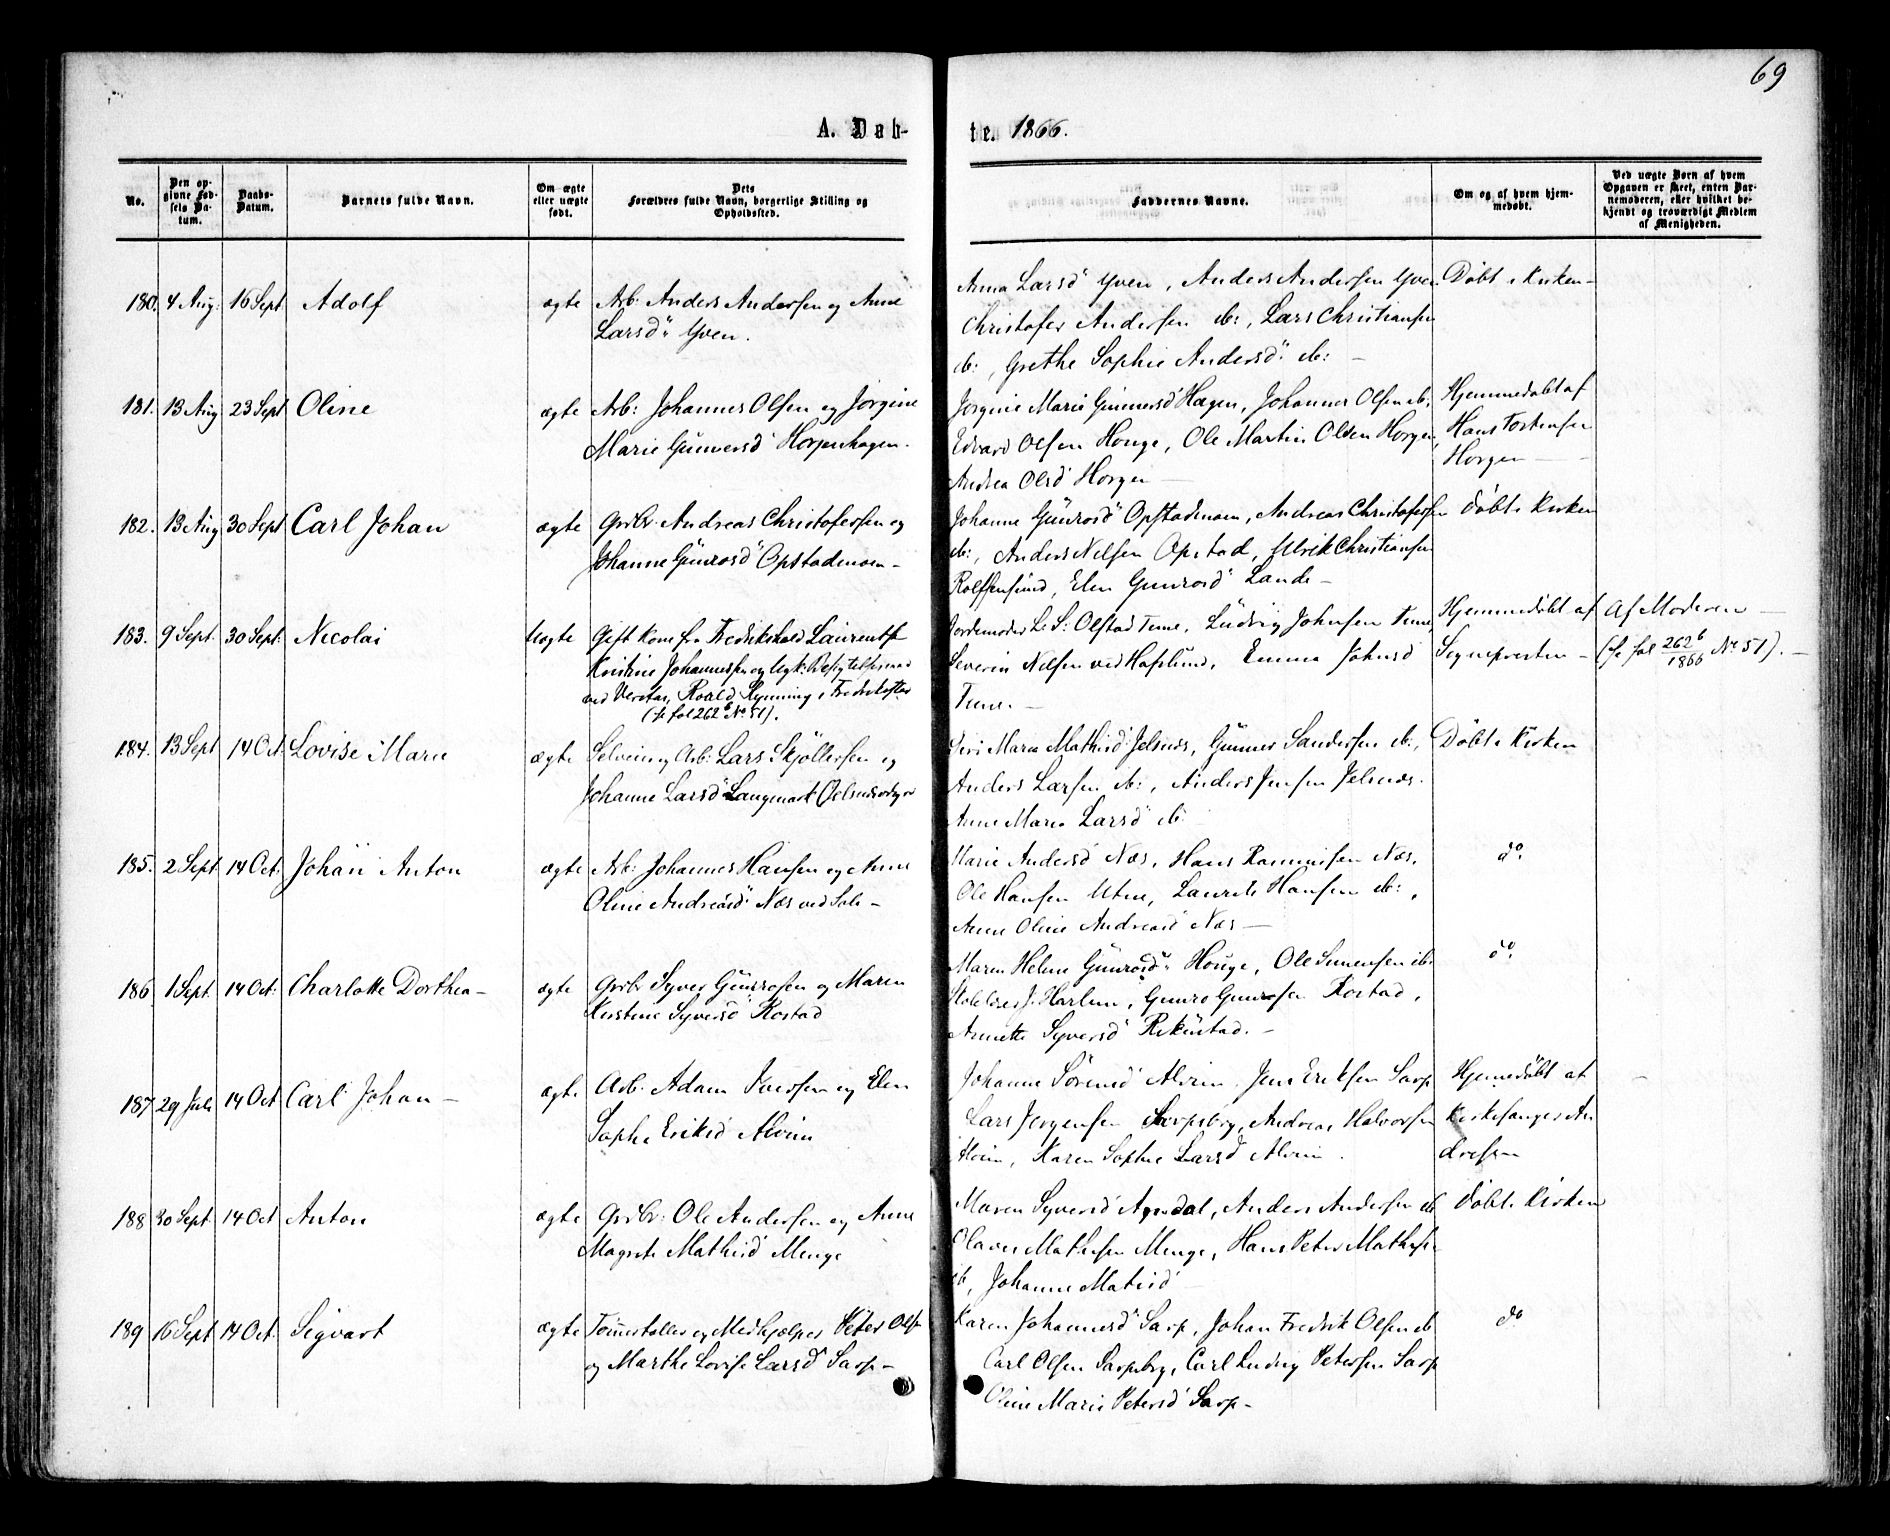 69
A. Døb-
te. 1866.
No.
Den op-
givne Fød-
sels Da-
tum.
Daabs-
Datum.
Barnets fulde Navn.
Om ægte
eller uægte
født.
Dets
Forældres fulde Navn, borgerlige Stilling og
Opholdssted.
Faddernes Navne.
Om og af hvem hjem-
medøbt.
Ved uægte Børn af hvem
Opgaven er skeet, enten Bar-
nemoderen, eller hvilket be-
kjendt og troværdigt Medlem
af Menigheden.
180. 4 Aug. 16 Sept Adolf ægte Arb: Anders Andersen og Anne
Larsd" Yven.
Anna Larsd" Yven, Anders Andersen Yven
Christofer Andersen ib:, Lars Christiansen
ib:, Grethe Sophie Andersd" ib: –
Døbt i Kirken –
181. 13 Aug 23 Sept Oline ægte Arb: Johannes Olsen og Jørgine
Marie Gunnersd"
Jørgine Marie Gunnersd Hagen, Johannes Olsen ib.
Edvard Olsen Houge, Ole Martin Olsen Horgen,
Andrea Olsd Horgen –
Hjemmedøbt af
Hans Torkensen
Horgen –
182. 13 Aug 30 Sept Carl Johan ægte Grbr. Andreas Christofersen og
Johanne Gunrosd" Opstadmoen –
Johanne Gunrosd" Opstadmoen, Andreas Christofersen
ib:, Anders Nelsen Opstad, Ulrik Christiansen
Rolfsensund, Elen Gunrosd" Lande –
Døbt i Kirken
183. 9 Sept. 30 Sept. Nicolai Uægte Gift Kone fra Fredrikshald Laurentse
Kristine Johannessen og
ved Roald Rynning i
(se fol 262 b No 51).
Jordemoder L. S. Olstad Tune, Ludvig Johnsen Tune,
Severin Nelsen ved Hafslund, Emma Johnsd
Tune. –
Hjemmedøbt af
Sognepresten –
Af Moderen –
(se fol 262 b/1866 No 51). –
184. 13 Sept 14 Oct Lovise Marie ægte Selveier og Arb: Lars Skjøllersen og
Johanne Larsd Langmark
Siri Maria Mathisd Jelsnes, Gunner Sandersen ib.,
Anders Larsen ib:, Anders Jensen Jelsnæs.
Anne Maria Larsd ib
Døbt i Kirken
185. 2 Sept 14 Oct: Johan Anton ægte Arb: Johannes Hansen og Anne
Oline Andreasd" Næs ved Sole –
Marie Andersd Næs, Hans Rasmussen Næs,
Ole Hansen Utne, Laurits Hansen ib:,
Anne Oline Andreasd Næs –
do.
186 1 Sept. 14 Oct: Charlotte Dorthea – ægte Grbr Syver Gunrosen og Maren
Kirstine Syversd" Rostad
Maren Helene Gunrosd" Houge, Ole Simensen ib:
J. Harlem, Gunro Gunrosen Rostad,
Annette Syversd" Rikenstad. –
do.
187 29 Juli 14 Oct Carl Johan – ægte Arb. Adam Iversen og Elen
Sophie Eriksd Alvim
Johanne Sørensd Alvim. Jens Eriksen Sarp
Lars Jørgensen Sarpsborg, Andreas Halvorsen
Alvim, Karen Sophie Larsd Alvim.
Hjemmedøbt af
Kirkesanger An
dresen
188 30 Sept 14 Oct Anton ægte Grbr: Ole Andersen og Anne
Magrete Mathisd Menge
Maren Syversd Agndal, Anders Andersen ib
Olaves Mathisen Menge, Hans Peter Mathisen
ib, Johanne Matisd –
Døbt i Kirken
189 16 Sept 14 Oct. Sigvart ægte Tømertæller og Medhjælper Peter Olsen
og Marthe Lovise Larsd Sarp –
Karen Johannesd" Sarp, Johan Fredrik Olsen ib
Carl Olsen Sarpsborg, Carl Ludvig Petersen Sarp
Oline Marie Petersd Sarp –
do